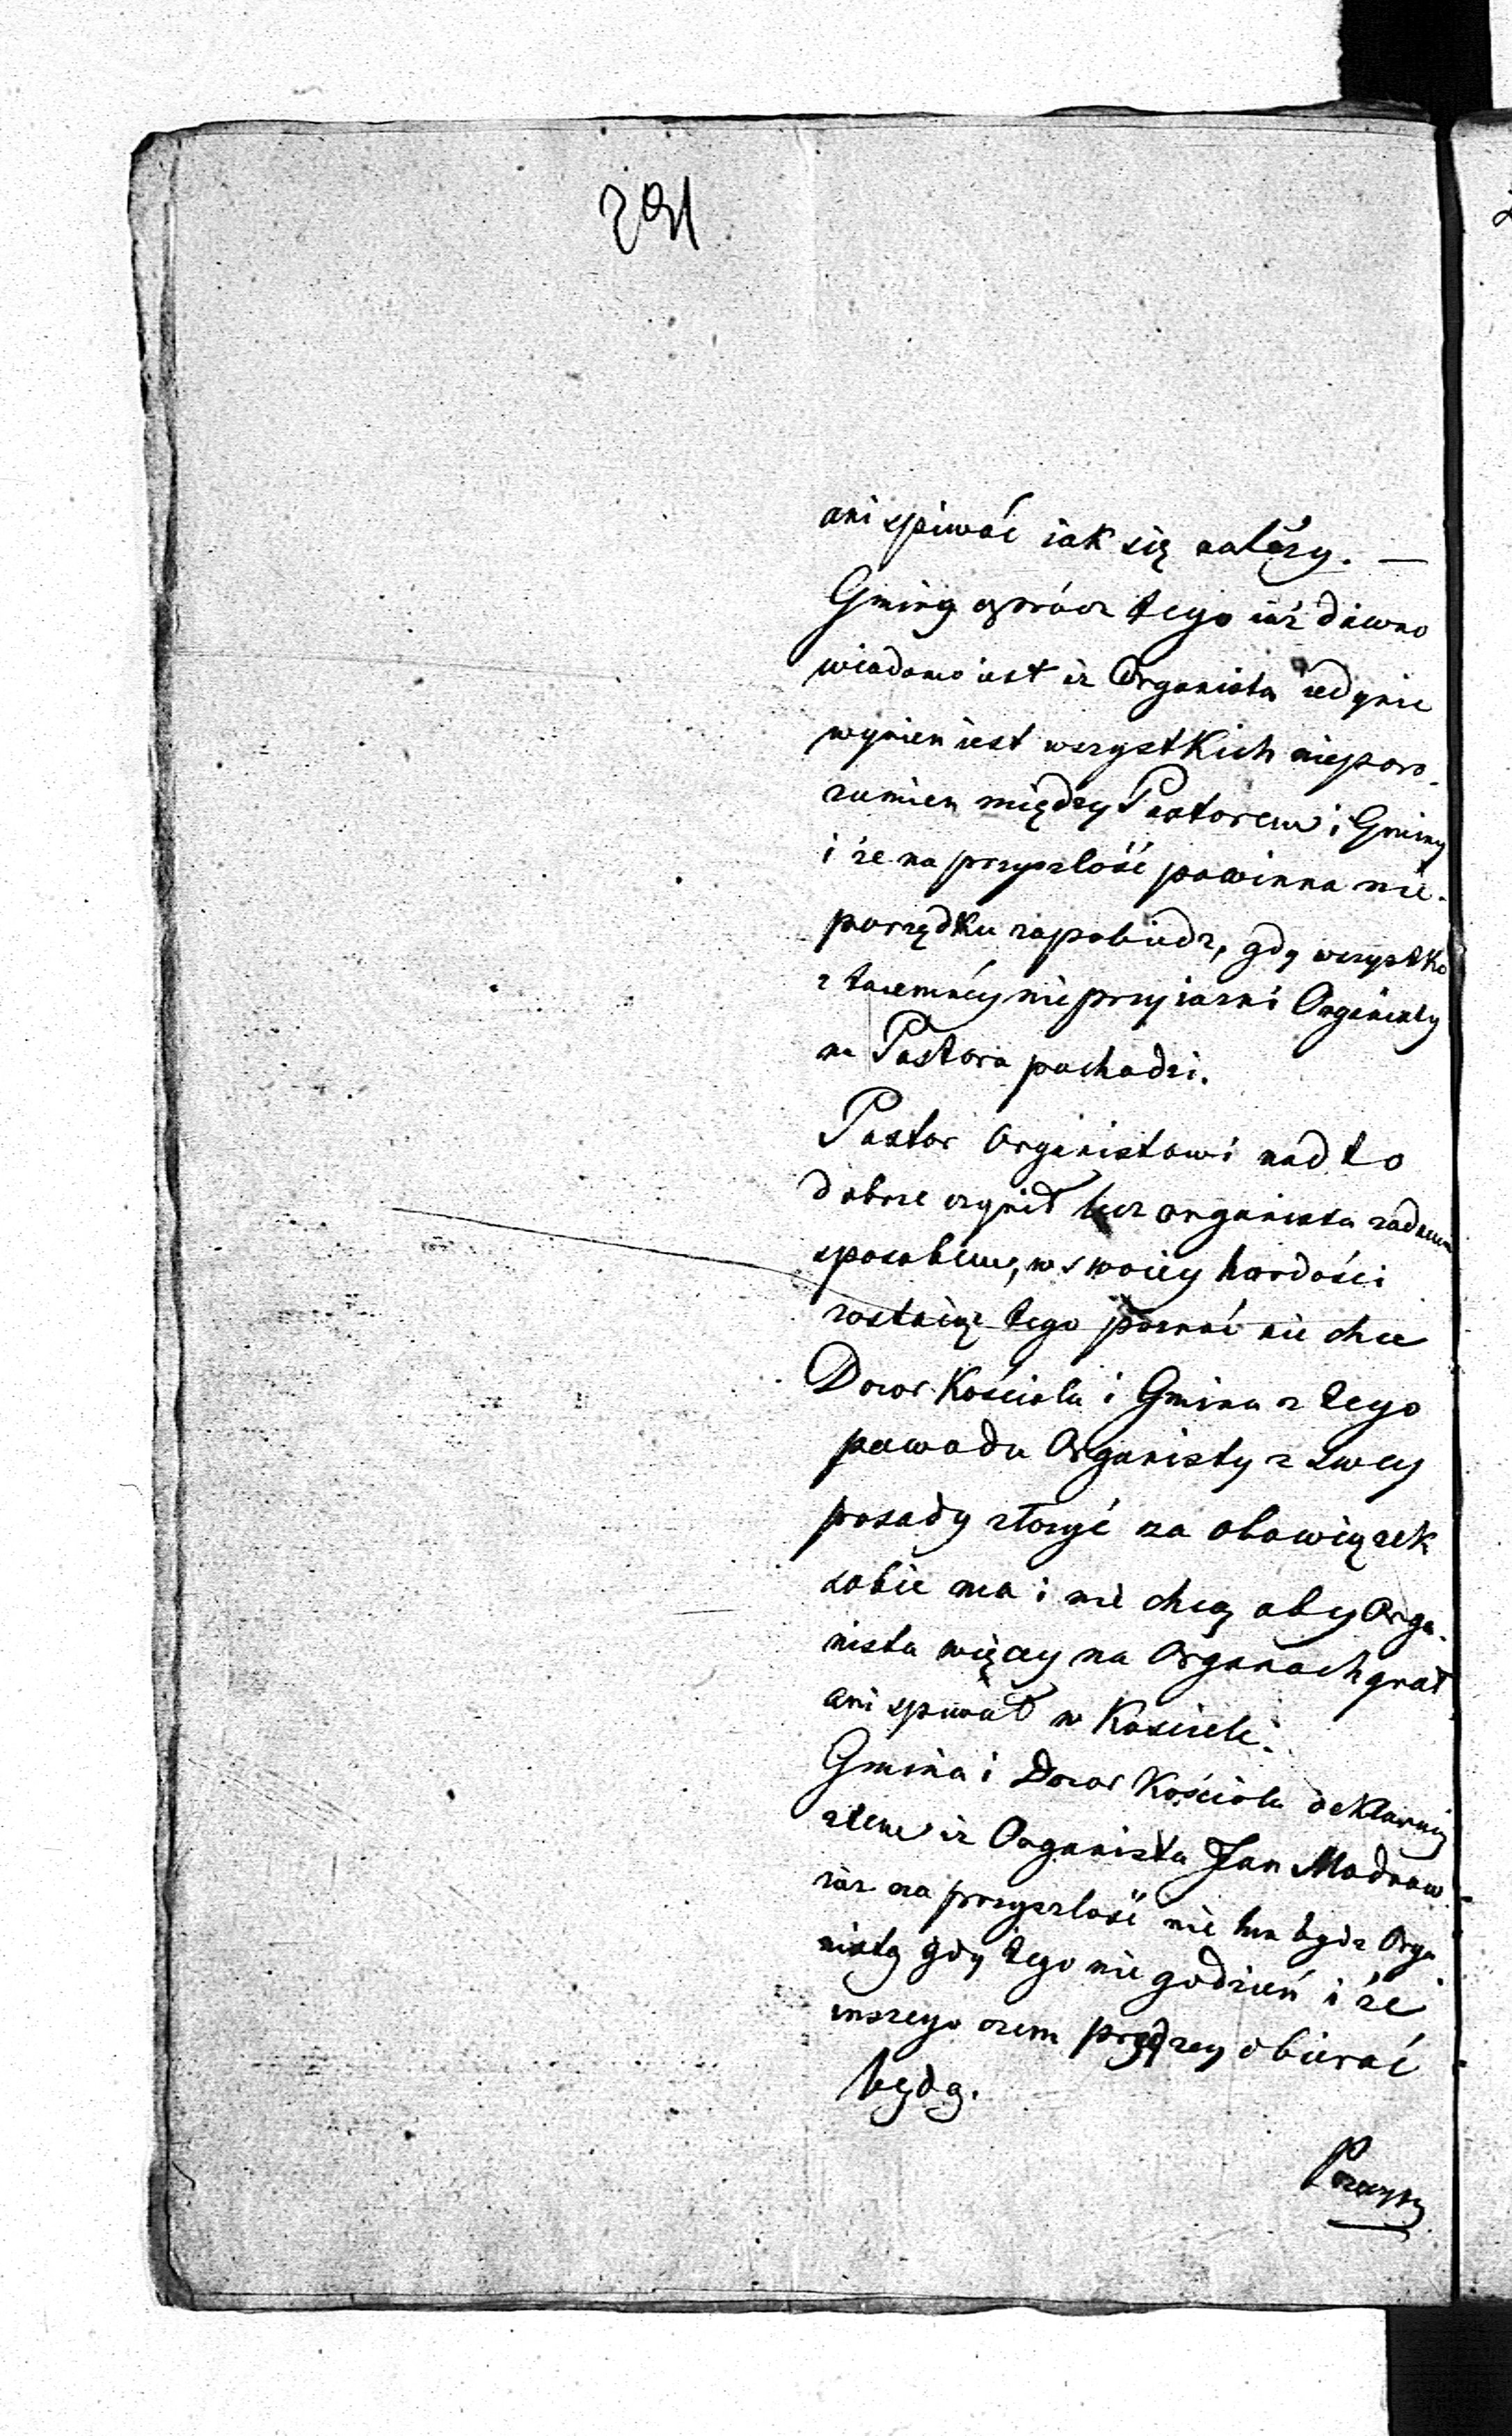 291
ani spiwać iak się należy. —
Gminy oprócz tego iuż dawno
wiadomo iest iż Organista iedynie
wynien iest wszystkich nieporo-
zumien między Pastorem i Gminy
i że na przyszłość powinna nie-
porządku zapobiedz, gdy wszystko
z taiemnéy nieprzyiazni Organisty
na Pastora pochodzi.
Pastor Organistowi nadto
dobrze czynił lecz organista zadnem
sposobem, w swoiey hardości
zostaiąc tego poznać nie chce
Dozor Kościoła i Gmina z tego
powodu Organisty z swey
posady złożyć za obowiązek
sobie ma i nie chcą aby Orga-
nista więcey na Organach grał
ani spiwał w Kosciele.
Gmina i Dozor Kościoła deklarują
zatem iż Organista Jan
iuż na przyszłość nie ma bydz Orga
nistą gdy tego nie godzień i że
inszego czem prędzey obierać
będą.